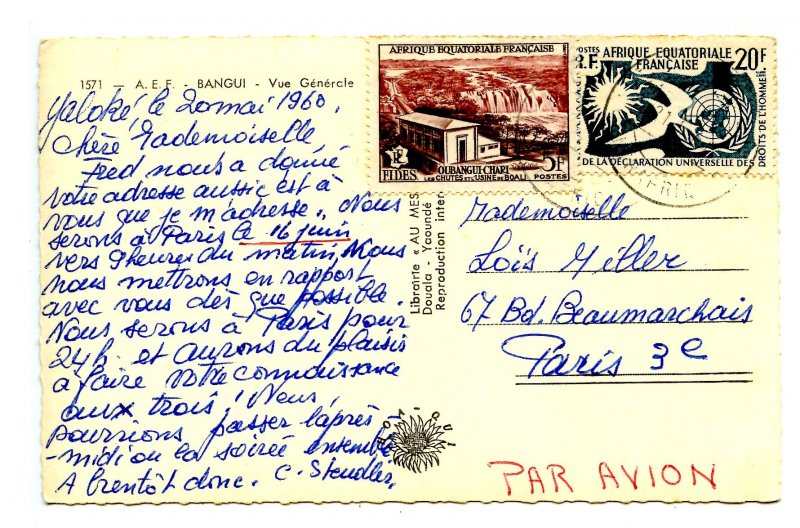 1571 — A. E. F. - BANGUI - Vue Générale
Yaloké, le 20 mai 1960.
Chère Mademoiselle
Fred nous a donné
votre adresse aussi c'est à
vous que je m'adresse. Nous
serons à Paris le 16 juin
vers 9 heures du matin. Nous
nous mettrons en rapport
avec vous dès que possible.
Nous serons à Paris pour
24 h. et aurons du plaisir
à faire votre connaissance
aux trois! Nous
pourrions passer l'après
-midi ou la soirée ensemble
A bientôt donc. C. Steudler.
AFRIQUE EQUATORIALE FRANÇAISE
FIDES
OUBANGUI-CHARI
LES CHUTES ET L'USINE DE BOALI
5F
POSTES
POSTES AFRIQUE EQUATORIALE 20F
R.F. FRANÇAISE
DE LA DÉCLARATION UNIVERSELLE DES
DROITS DE L'HOMME
Librairie « AU MES
Douala - Yaoundé
Reproduction inter
HOA-QUI
Mademoiselle
Loïs Miller
67 Bd. Beaumarchais
Paris 3e
PAR AVION